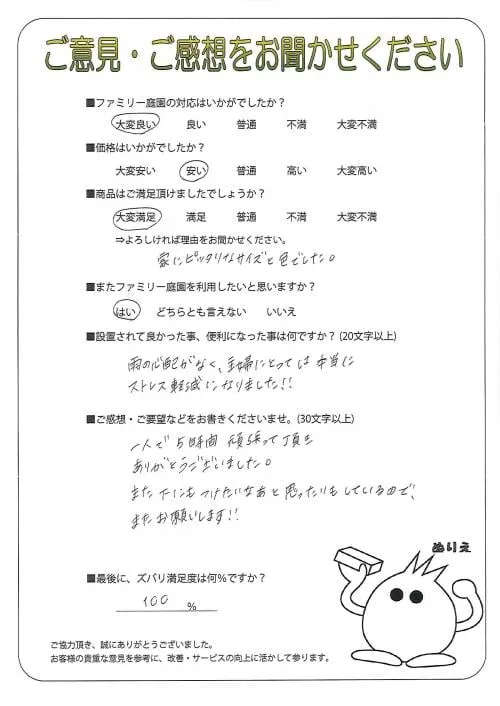 ご意見・ご感想をお聞かせください
■ファミリー庭園の対応はいかがでしたか？
大変良い 良い 普通 不満 大変不満
■価格はいかがでしたか？
大変安い 安い 普通 高い 大変高い
■商品はご満足頂けましたでしょうか？
大変満足 満足 普通 不満 大変不満
⇒よろしければ理由をお聞かせください。
家にピッタリなサイズと色でした。
■またファミリー庭園を利用したいと思いますか？
はい どちらとも言えない いいえ
■設置されて良かった事、便利になった事は何ですか？(20文字以上)
雨の心配がなく、主婦にとっては本当に
ストレス軽減になりました!!
■ご感想・ご要望などをお書きくださいませ。(30文字以上)
一人で5時間頑張って頂き
ありがとうございました。
また下にもつけたいなあと思ったりもしているので、
またお願いします!!
ぬりえ
■最後に、ズバリ満足度は何％ですか？
100 %
ご協力頂き、誠にありがとうございました。
お客様の貴重な意見を参考に、改善・サービスの向上に活かして参ります。